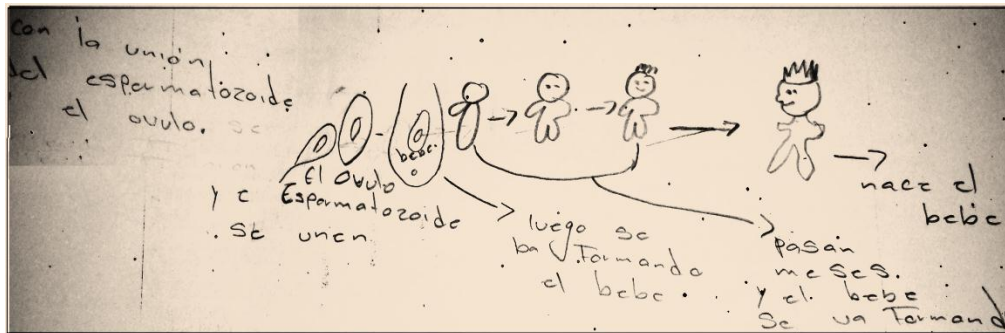 con la unión
del espermatozoide
el ovulo. se
El Ovulo
y e Espermatozoide
. se unen
bebe.
luego se
ba Formando
el bebe.
pasan
meses.
y el bebe
se va Formand
nace el
bebe